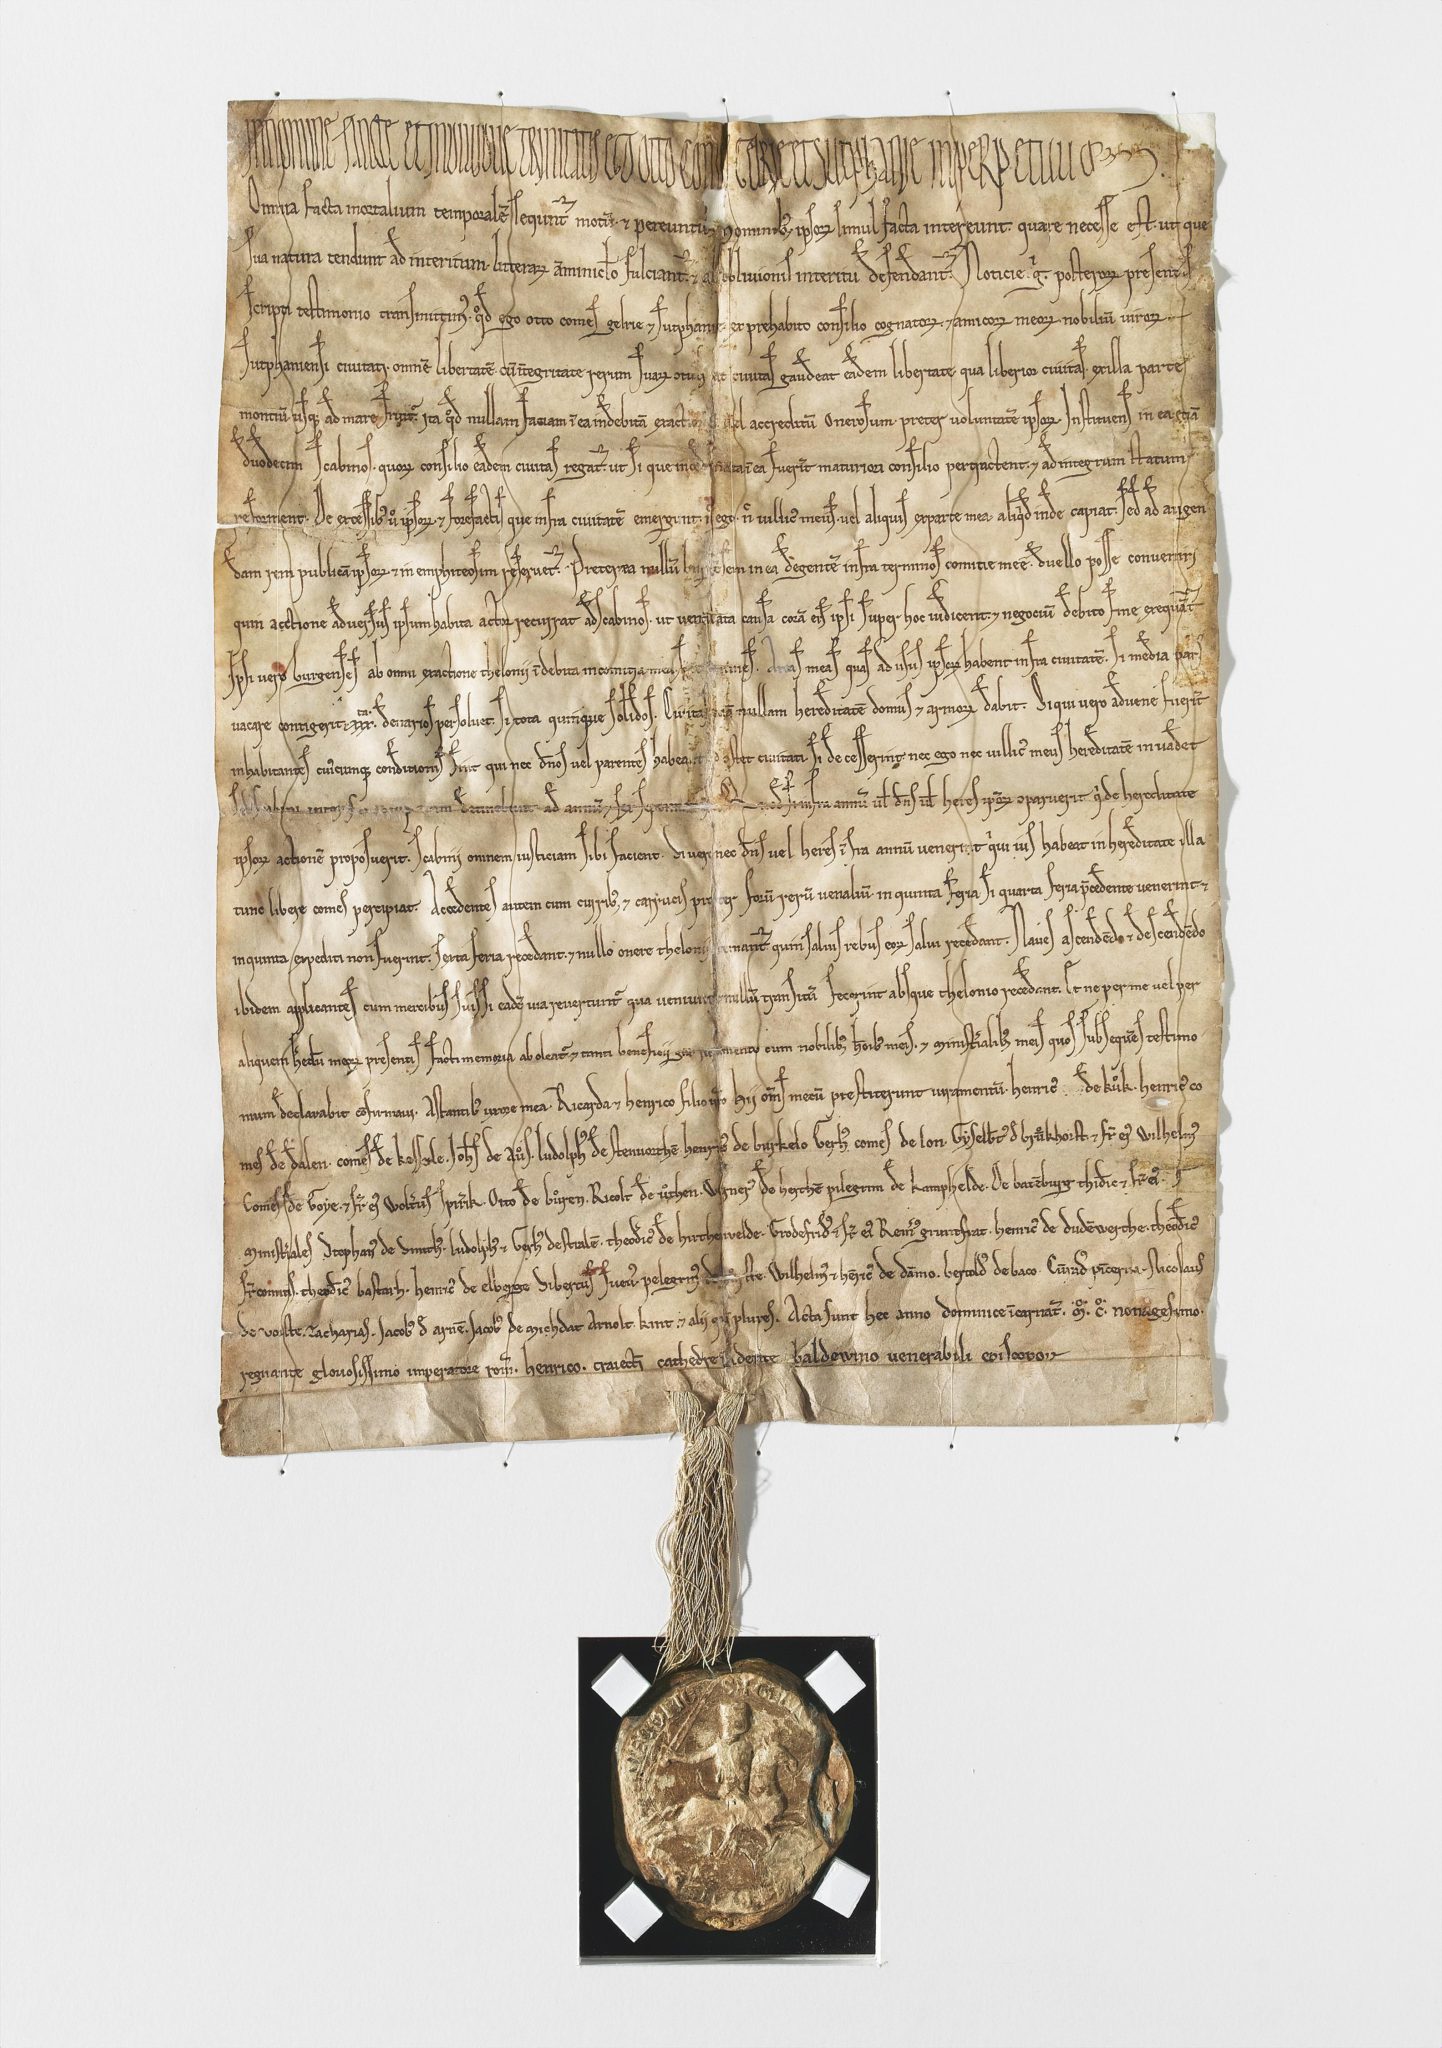 In nomine sancte et individue trinitatis ego Otto comes gelrie et sutphanie in perpetuum
Omnia facta mortalium temporalē sequunt᷑ motū · ⁊ pereuntibꝰ hominibꝰ ipsoꝝ simul facta intereunt · quare necesse est · ut que
sua natura tendunt ad interitum · litteraꝝ amminiclo fulciant᷑ · ⁊ ab oblivionis interitu defendant᷑ Noticie g° posteroꝝ presentis
scripti testimonio transmittimꝰ · qd ego otto comes gelrie ⁊ sutphanie · et prehabito consilio cognatoꝝ · ⁊ amicoꝝ meoꝝ nobiliū viroꝝ
sutphaniensi civitati · omnē libertatē cū integritate rerum suaꝝ at civitas gaudeat eadem libertate qua liberior civitas · ex illa parte
montiū usqꝫ ad mare fruit᷑ · ita qd nullam faciam ī ea indebitā exactionē vel accreditū onerosum preter voluntatē ipsoꝝ Instituens in ea etiā
duodecim scabinos · quoꝝ consilio eadem civitas regat᷑ · ut si que ī ea fuerīt maturiori consilio peragantent · ⁊ ad integrum statum
reforment · De excessibꝰ ū ipsoꝝ · ⁊ forefactis que infra civitatē emergunt · nec ego · n villicꝰ meus · vel aliquis ex parte mea · aliqd inde capiat · sed ad augen
dam rem publicā ipsoꝝ ⁊ in emphiteosim reservet᷑ · Preterea nullū burgensem in ea degentē infra terminos comitie meē · duello posse conveniri
quin actione adversus ipsum habita actor recurrat ad scabinos · ut ventilata causa corā eis ipsi super hoc iudicent · ⁊ negociū debito fine exequāt᷑
Ipsi vero burgenses ab omni exactione thelonii īdebita in comitia mea · Areas meas quas ad usus ipsoꝝ habent infra civitatē · si media pars
vacare contigerit · xxx · denarios persolvet · si tota quinque solidos · Civitas nullam hereditatē domus ⁊ armoꝝ dabit · Si qui vero advene fuerīt
inhabitantes cuiuscunqꝫ conditionis sint qui nec dn̄os vel parentes habeant civitati si decesserint nec ego nec villicꝰ meus hereditatē invadet
ad annū ⁊ sex infra annū ul̄ dn̄s ul̄ heres ipoꝝ ꝯparuerit q de hereditate
ipsoꝝ actionē proposuerit · scabini omnem iusticiam sibi facient · Si vero nec dn̄s vel heres īfra annū venerit qui ius habeat in hereditate illa
tunc libere comes percipiat · Accedentes autem cum curribꝰ ⁊ carrucis propter forū rerū venaliū in quinta feria si quarta feria p̄cedente venerint ⁊
in quinta expediti non fuerint · sexta feria recedant · ⁊ nullo onere thelonii quin salvis rebus eoꝝ salvi recedant · Naves ascendēdo ⁊ descendēdo
ibidem applicantes cum mercibus suis si eadē via revertunt᷑ qua veniunt nullū transitū fecerint absque thelonio recedant · Et ne per me vel per
aliquem hedū meoꝝ presentis facti memoria aboleat᷑ ⁊ tanti beneficii iuramento cum nobilibꝰ hoībꝰ meis · ⁊ ministialibꝰ meis quos subsequēs testimo
nium declarabit cōfirmavi · Astantibꝰ uxore mea · Ricarda ⁊ henrico filio hij oīns mecū prestiterunt iuramentū · henricꝰ de kuk · henricꝰ co
mes de dalen · comes de kessele · Johs de · ludolphꝰ de stenvorthē henricꝰ de burkelo Gerhꝰ comes de lon · Gyselbt᷑ d brukhorst ⁊ fr̄ eiꝰ wilhelmꝰ
Comes de Goye · ⁊ fr̄ eiꝰ · Otto de buren · Ricolt de · de herthē pilegrim de kamphelde · De batēburg thidic ⁊ fr̄ eiꝰ ·
Ministiales Stephanꝰ de · ludolphꝰ ⁊ Gerhꝰ de · theodicꝰ de hirthewelde · Godefridꝰ ⁊ fr̄ eiꝰ · henricꝰ de dudēwerthe · theodicꝰ
fr̄ comitis · theodicꝰ bastarth · henricꝰ de elberge Sibertus · pelegrimꝰ · wilhelmꝰ ⁊ hēricꝰ de dāmo · bertoldꝰ de baco · Cūrad pīcerna · Nicolaus
de vorste · Zacharias · Jacobꝰ d arnē · Jacobꝰ de Arnolt · kint · ⁊ alij plures · Acta sunt hec anno dominice īcarnat᷑ · M° · C° · nonagesimo ·
regnante gloriosissimo imperatore rom̄ · henrico · traiecti cathedre sidente baldewino venerabili episcopo